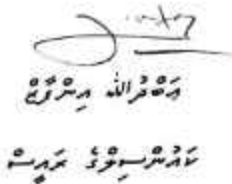 ޢަބްދުﷲ އިންފާޒް
ކައުންސިލްގެ ރައީސް